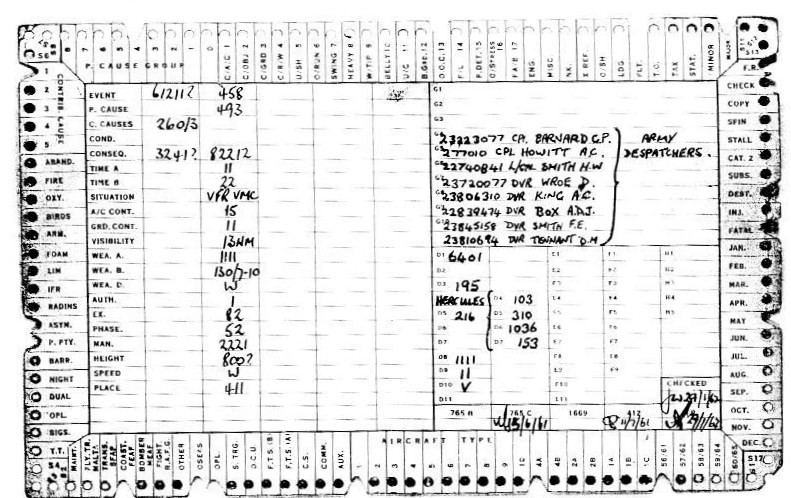 S6 8 7 6 5 4 3 2 1 0 C/A.C. 1 C/OBJ 2 C/GRD 3 C/R/W 4 U/SH 5 O/RUN 6 SWING 7 HEAVY 8 W/TIP 9 BELLY 10 U/C 11 B.GRD. 12 O.O.C. 13 F/L 14 P.DET. 15 O/STRESS 16 F.A/B 17 ENG. MISC NK. X REF. O/SH LDG FLT. T.O. TAX STAT. MINOR MAJOR S11 S12 S13
P. CAUSE GROUP
F.R.
CONTRIB. CAUSE
1
2
3
4
5
ABAND.
FIRE
OXY.
BIRDS
ARM.
FOAM
LIM
IFR
RADINS
ASYM.
P. PTY.
BARR.
NIGHT
DUAL
OPL.
BIGS.
T.T.
EVENT 6/2/1? 458
P. CAUSE 493
C. CAUSES 260/3
COND.
CONSEQ. 3241? 82212
TIME A 11
TIME B 22
SITUATION VFR VMC
A/C CONT. 15
GRD. CONT. 11
VISIBILITY 13NM
WEA. A. 1111
WEA. B. 130/7-10
WEA. D. W
AUTH. 1
EX. 82
PHASE. 52
MAN. 2221
HEIGHT 800?
SPEED W
PLACE 411
G1
G2
G3
23223077 CP. BARNARD G.P.
277010 CPL HOWITT A.C.
22740841 L/CPL SMITH H.W
23720077 DVR WROE D.
23806310 DVR KING A.C.
22839474 DVR BOX A.D.J.
23845158 DVR SMITH F.E.
23810694 DVR TENNANT D.M
ARMY
DESPATCHERS.
D1 6401 E1 F1 H1
D2
D3 195
HERCULES D4 103
D5 216 D5 310
D6 D6 1036
D7 D7 153
D8 1111
D9 11
D10 V
D11
CHECKED
27/1/62
29/1/62
765 B 765 C 1669 412
15/6/61 11/7/61
CHECK
COPY
SPIN
STALL
CAT. 2
SUBS.
DEST.
INJ.
FATAL
JAN.
FEB.
MAR.
APR.
MAY
JUN.
JUL.
AUG.
SEP.
OCT.
NOV.
DEC.
AIRCRAFT TYPE
MAINT. FLY.TR. MALTA TRANS. AFAF COAST. FEAF BOMBER MEAF FIGHT. R.A.F.G. OTHER OSEAS OPL. S. TRG. O.C.U. F.T.S. (B) F.T.S. (A) C.S. COMM. AUX. 1 2 3 4 5 6 7 8 9 10 1D 4A 4B 2A 2B 1A 1B 1C 56/61 57/62 58/63 59/64 60/65 S17